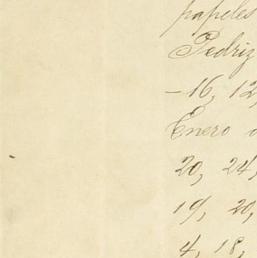 papeles
Pedriz
-16, 12,
Enero d
20, 24,
19, 20,
4, 18,